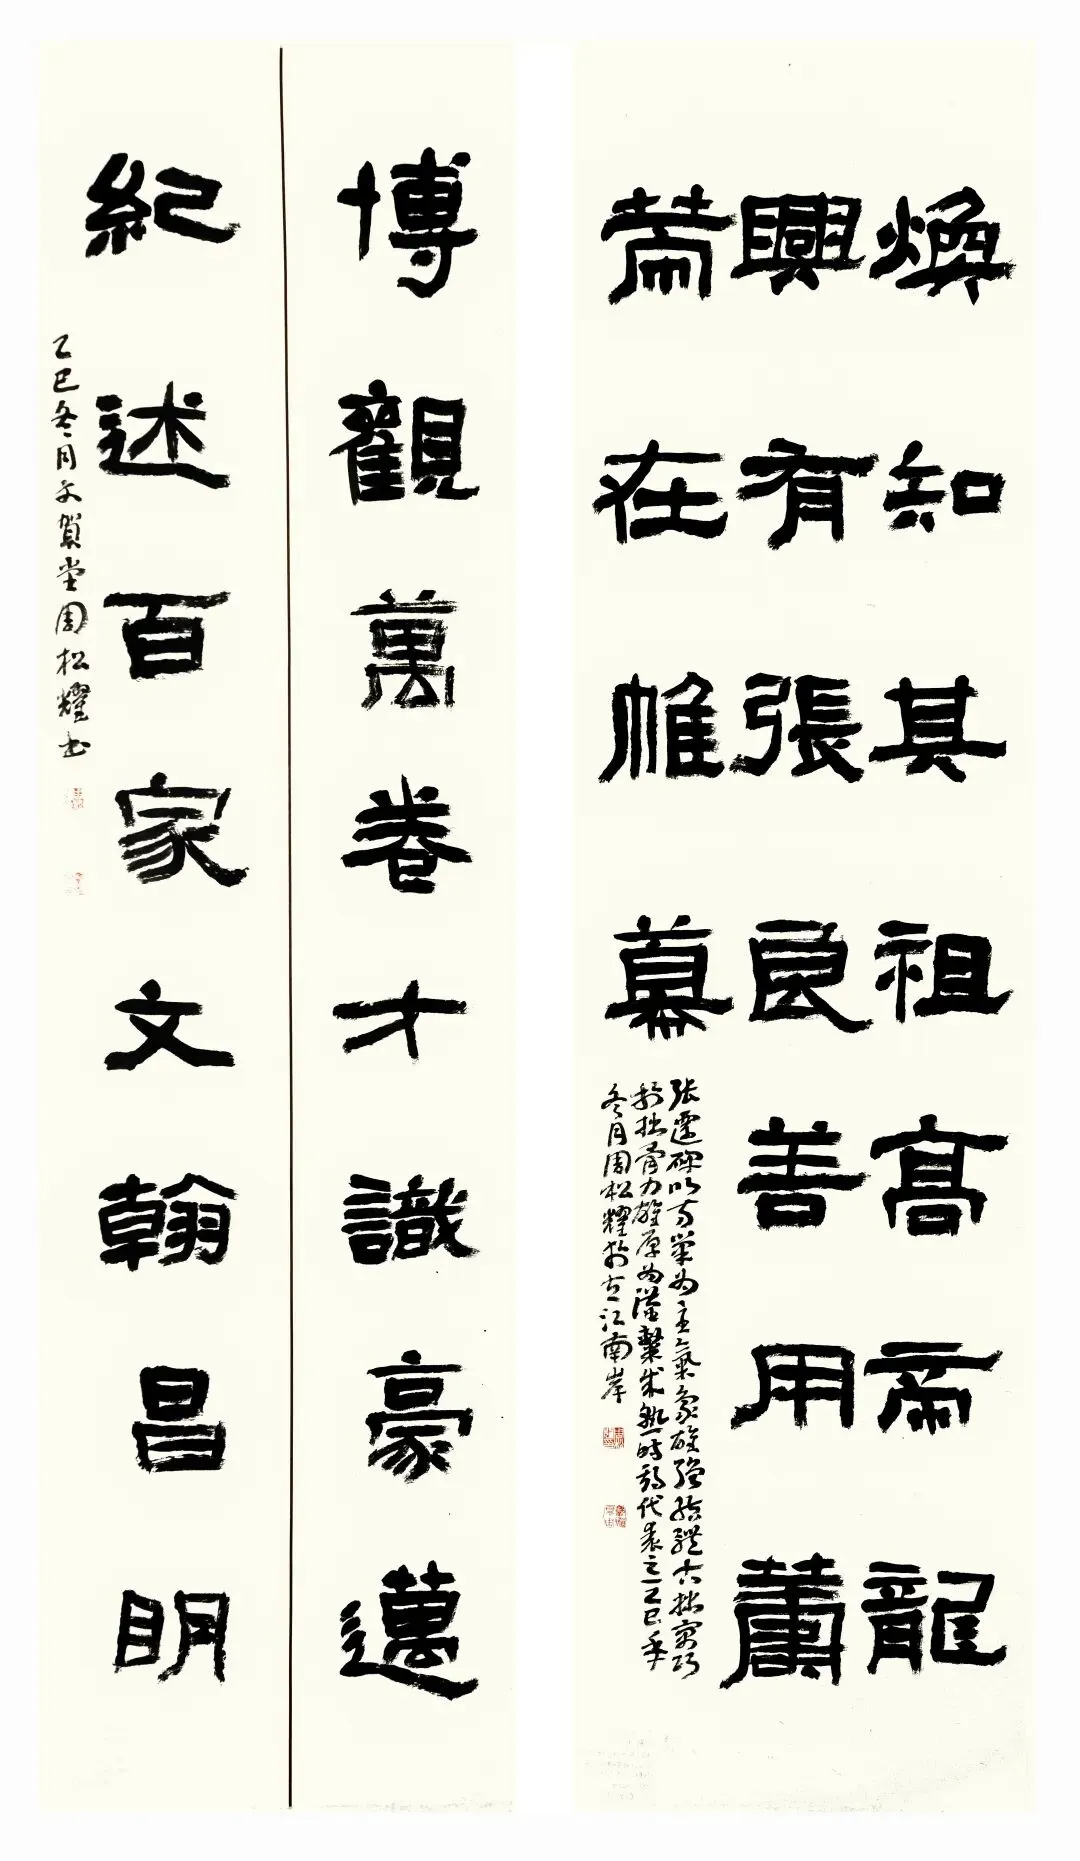 煥知其祖高帝龍
興有張良善用蕭
籌在帷幕
张遷碑以方筆为主氣象雄强結體古拙寓巧
於拙骨力雄厚为漢隸成熟時期代表之一乙巳年
冬月周松耀於古江南岸
博觀萬卷才識豪邁
紀述百家文翰昌明
乙巳冬月文賀堂周松耀书